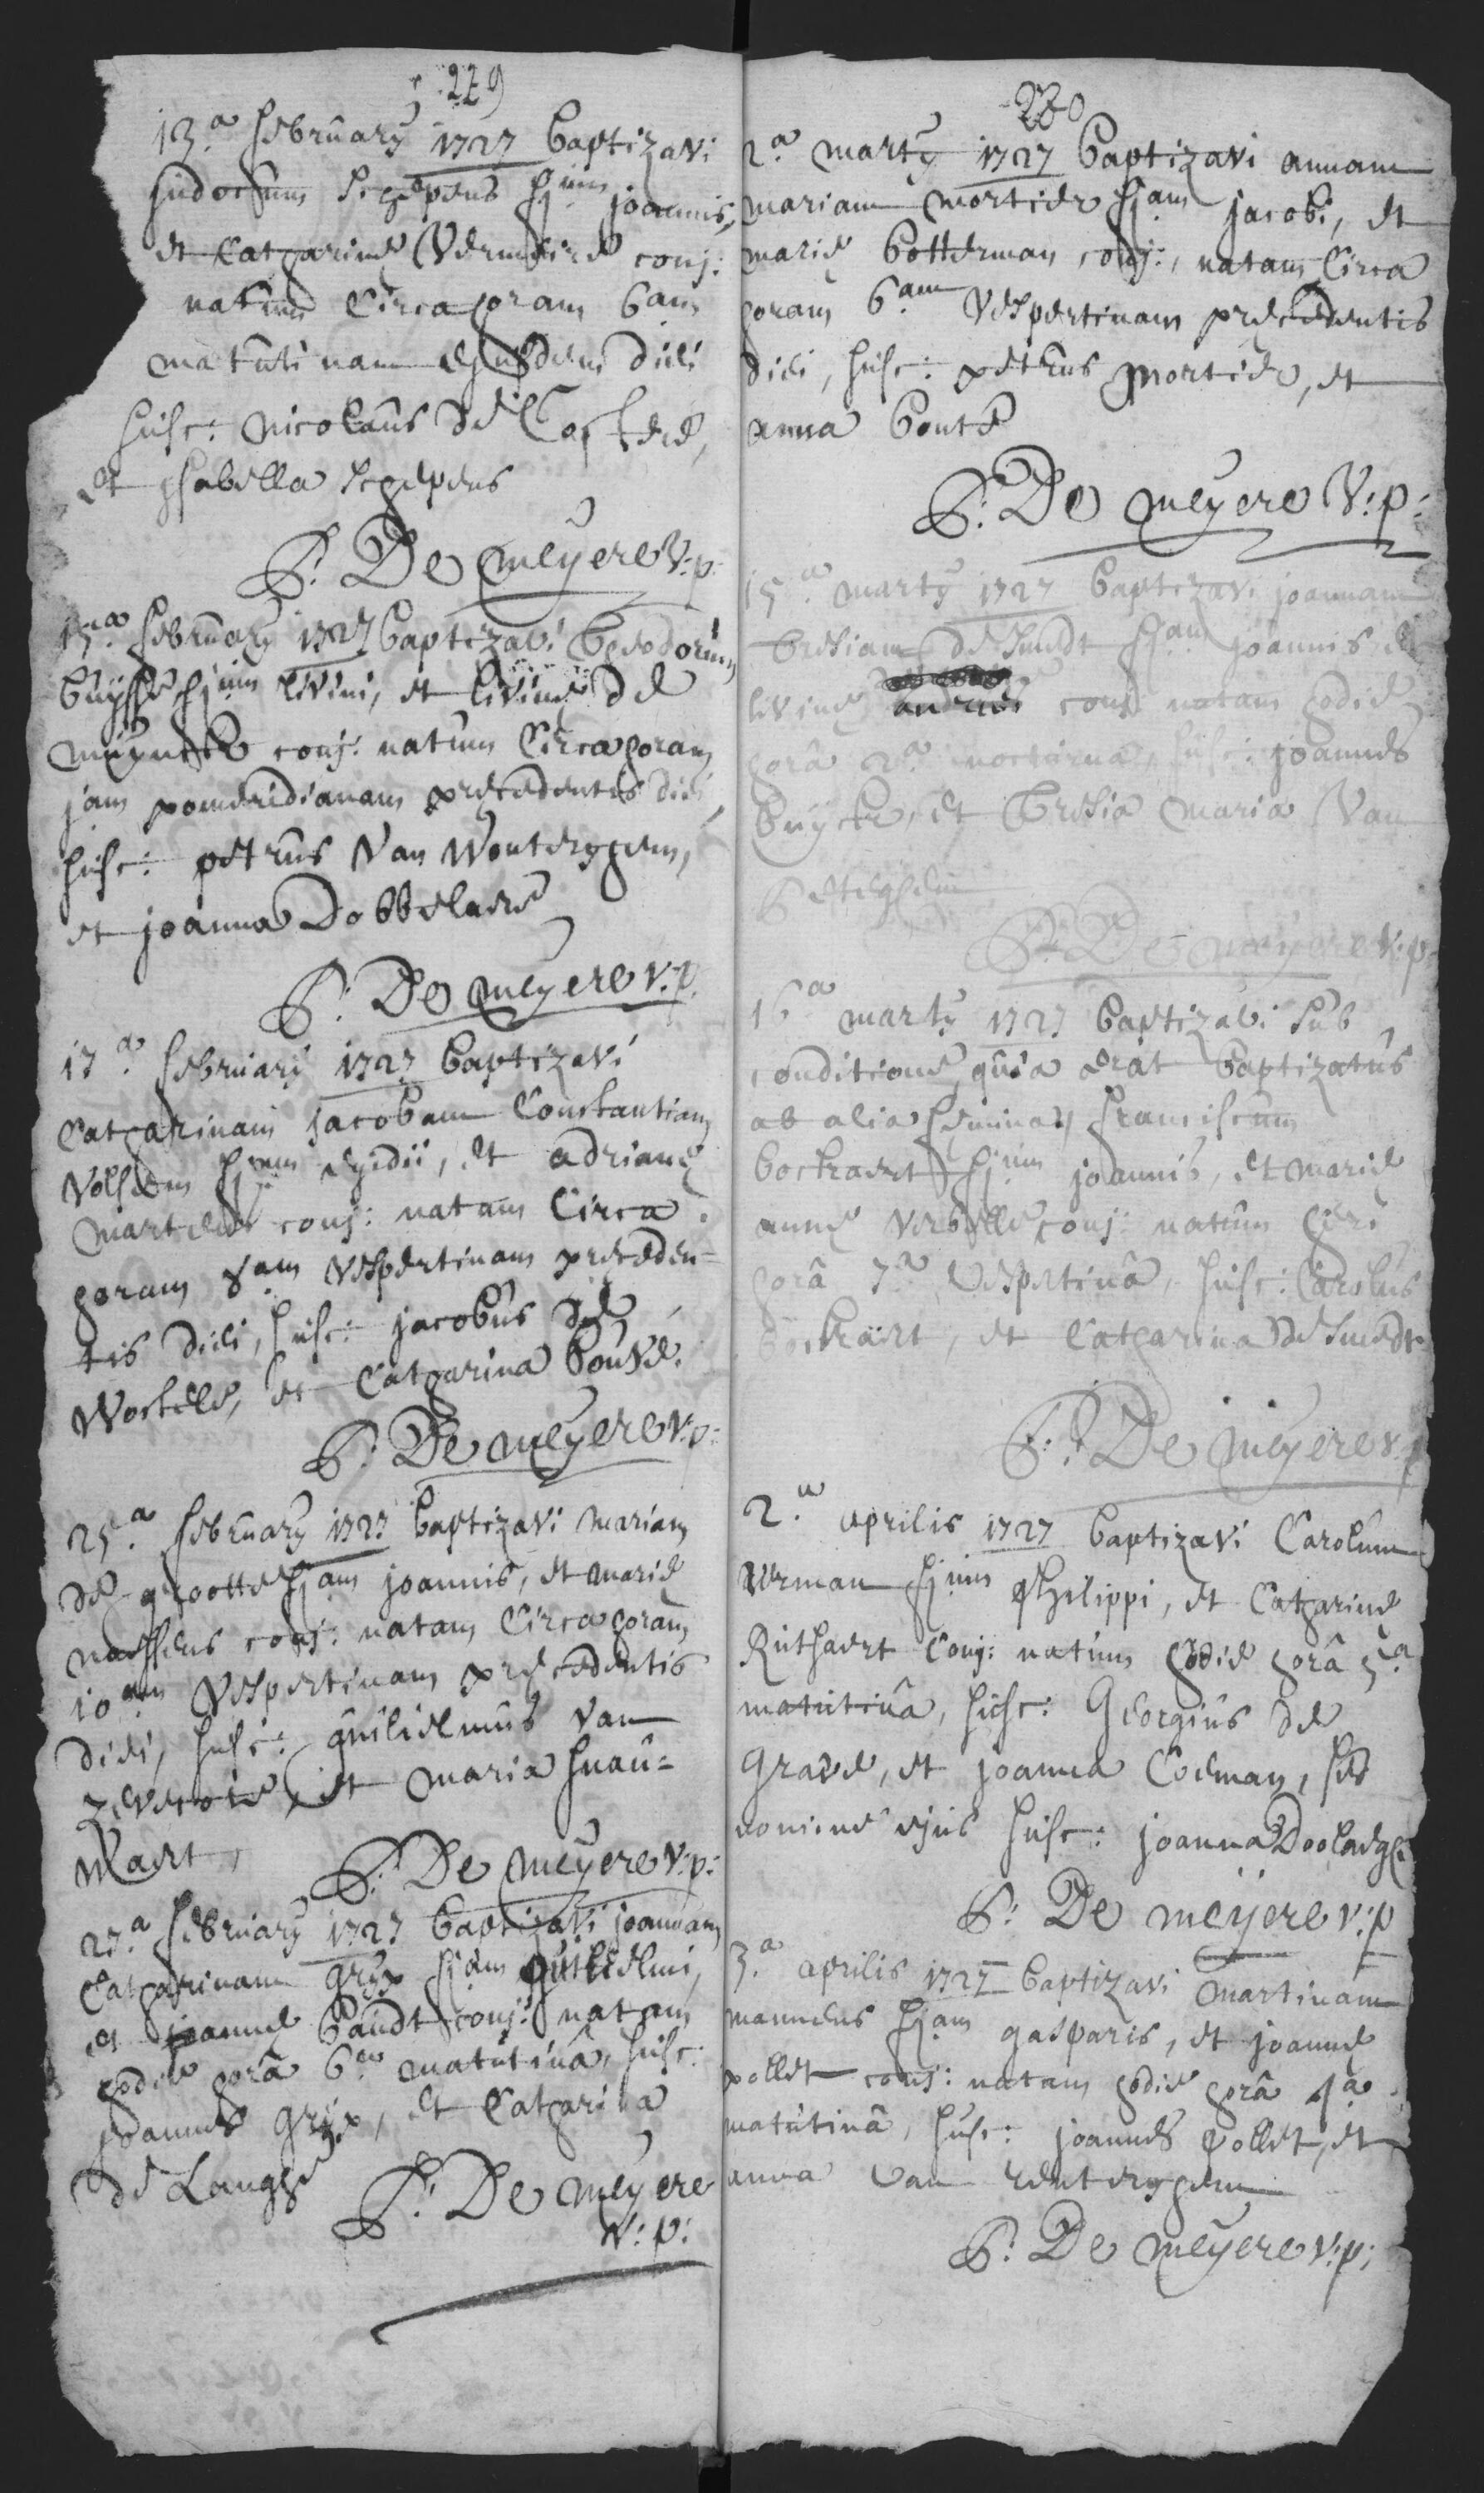 229
13.a february 1727 baptizavi
Judocum Schepens f.ium joannis,
et Catharinæ Vermeire conj:
natum Circa horam 6am
matutinam ejusdem diei
susc: Nicolaus de Costere,
et ysabella Schepens
P: De meyere V:p:
15.a february 1727 baptizavi theodorum
buysse f.ium livini, et livinæ de
muynck conj: natum Circa horam
jam pomeridianam præcedentis diei,
susc: petrus Van Wouterghem,
et joanna Dobbelaere
P: De meyere v:p.
17.a february 1727 baptizavi
Catharinam jacobam Constantiam
f.iam egidii, et adrianæ
martens conj: natam Circa
horam 8.am Vespertinam præceden=
tis diei, susc: jacobus de
et Catharina
P: De meyere v:p:
25.a february 1727 baptizavi mariam
de groote f.iam joannis, et mariæ
naessens conj: natam Circa horam
10.am Vespertinam præcedentis
diei, susc: guilielmus van
et maria
Waert,
P: De meyere v:p:
27.a february 1727 baptizavi joannam
Catharinam gryp f.iam guilielmi,
et joannæ baudt conj: natam
hodie horâ 6.a matutinâ, susc:
joannes gryp, et Catharina
de Langhe
P: De meyere
v:p:
230
2.a marty 1727 baptizavi annam
mariam mortier f.iam jacobi, et
mariæ botterman conj:, natam Circa
horam 6.am Vespertinam præcedentis
diei, susc: petrus mortier, et
anna bonte
P: De meyere V:p:
15.a marty 1727 baptizavi joannam
tresiam de smedt f.iam joannis, et
livinæ conj: natam hodie
horâ 2.a nocturnâ, susc: joannes
buyck, et tresia maria Van
P: De meyere v:p
16.a marty 1727 baptizavi sub
conditione, quia erat baptizatus
ab alia femina, franciscum
bockaert f.ium joannis, et mariæ
annæ Verbelle conj: natum heri
horâ 7.a Vespertinâ, susc: Carolus
bockaert, et Catharina de smedt
P: De meyere v:p
2.a aprilis 1727 baptizavi Carolum
f.ium philippi, et Catharinæ
Ruthaert Conj: natum hodie horâ 5.a
matutinâ, susc: Georgius de
Grave, et joanna Coeman, sed
nomine ejus susc: joanna Doolaeghe
P: De meyere v:p
3.a aprilis 1727 baptizavi martinam
mannens f.iam gasparis, et joannæ
pollet conj: natam hodie horâ 4.a
matutinâ, susc: joannes pollet, et
anna van renterghem
P: De meyere v:p: